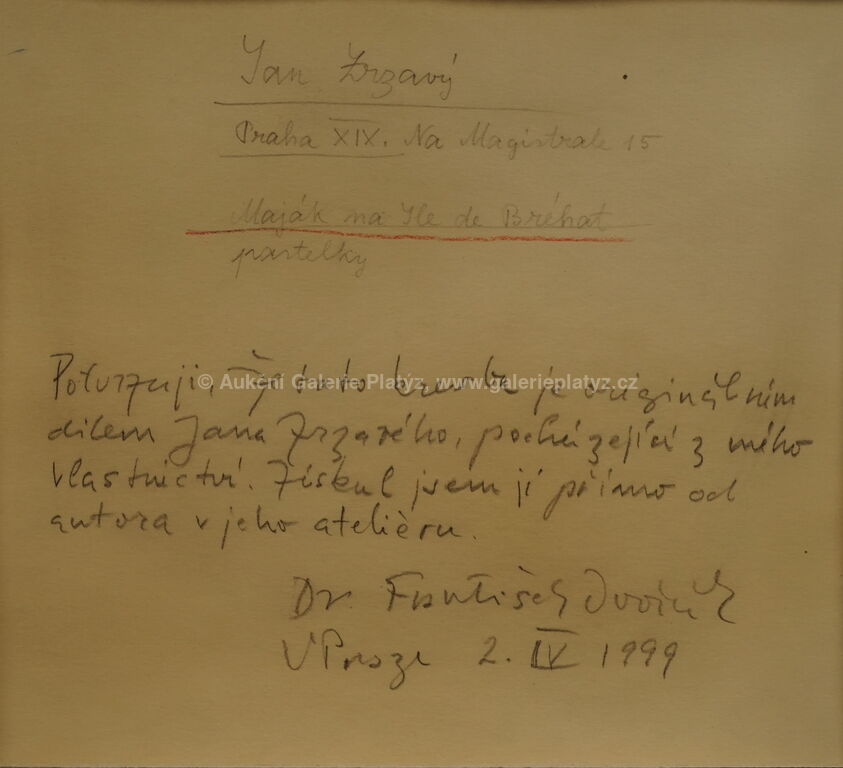 Jan Zrzavý
Praha XIX. Na Magistrale 15
Maják na Ile de Bréhat
pastelky
Potvrzuji, že tato kresba je originálním
© Aukční Galerie Platýz, www.galerieplatyz.cz
dílem Jana Zrzavého, pocházející z mého
vlastnictví. Získal jsem ji přímo od
autora v jeho ateliéru.
Dr. František Dvořák
V Praze 2. IV 1999